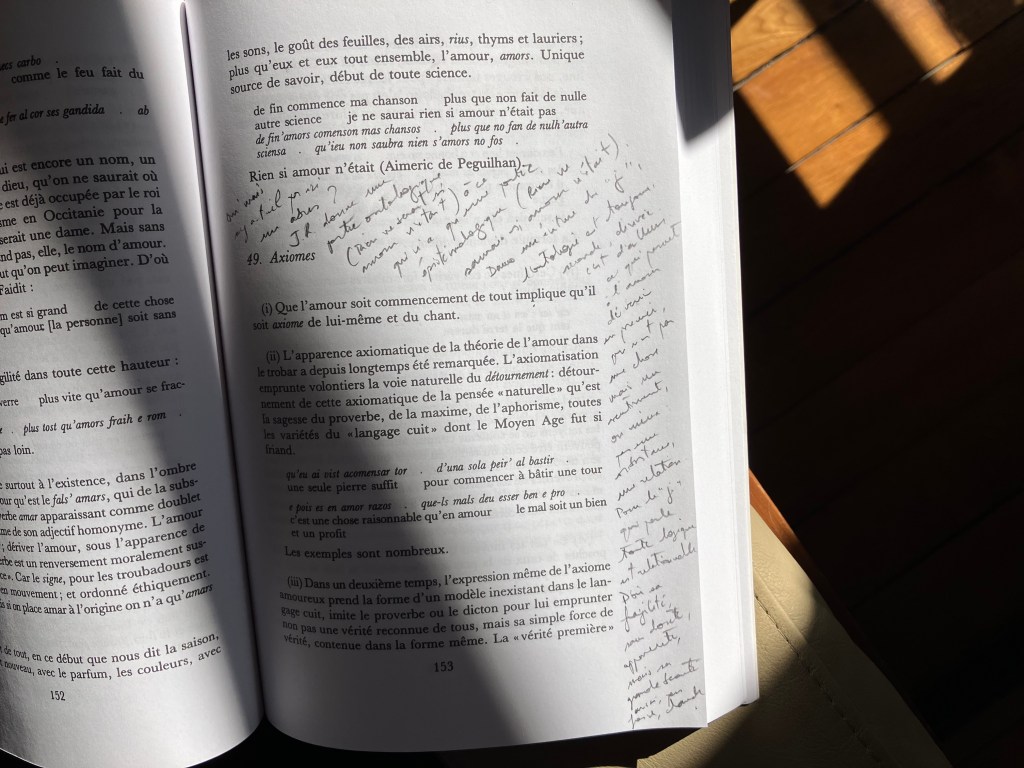 acs carbo .
comme le feu fait du
e fer al cor ses gandida . ab
ui est encore un nom, un
dieu, qu'on ne saurait où
est déjà occupée par le roi
sme en Occitanie pour la
serait une dame. Mais sans
nd pas, elle, le nom d'amour.
ut qu'on peut imaginer. D'où
Faidit :
m est si grand de cette chose
qu'amour [la personne] soit sans
gilité dans toute cette hauteur :
verre plus vite qu'amour se frac-
. plus tost qu'amors fraih e rom .
pas loin.
e surtout à l'existence, dans l'ombre
our qu'est le fals' amars, qui de la subs-
erbe amar apparaissant comme doublet
me de son adjectif homonyme. L'amour
; dériver l'amour, sous l'apparence de
rbe est un renversement moralement sus-
ce». Car le signe, pour les troubadours est
en mouvement ; et ordonné éthiquement.
si on place amar à l'origine on n'a qu'amars
de tout, en ce début que nous dit la saison,
nouveau, avec le parfum, les couleurs, avec
152
les sons, le goût des feuilles, des airs, rius, thyms et lauriers ;
plus qu'eux et eux tout ensemble, l'amour, amors. Unique
source de savoir, début de toute science.
de fin commence ma chanson plus que non fait de nulle
autre science je ne saurai rien si amour n'était pas
de fin'amors comenson mas chansos . plus que no fan de nulh'autra
sciensa . qu'ieu non saubra nien s'amors no fos .
Rien si amour n'était (Aimeric de Peguilhan).
J.R. donne une
portée ontologique
(Rien ne serait si
amour n'était) à ce
qui a
épistémologique (Rien ne
si amour n'était).
Dans une du "j",
l'ontologie est toujours
seconde,
ce qui permet
à amour
premier,
une chose
mais un
sentiment,
ou même
une relation
Pour le "j"
qui parle
toute logique
est relationnelle
fragilité,
sans doute,
apparente,
mais sa
grande
49. Axiomes
(i) Que l'amour soit commencement de tout implique qu'il
soit axiome de lui-même et du chant.
(ii) L'apparence axiomatique de la théorie de l'amour dans
le trobar a depuis longtemps été remarquée. L'axiomatisation
emprunte volontiers la voie naturelle du détournement : détour-
nement de cette axiomatique de la pensée « naturelle » qu'est
la sagesse du proverbe, de la maxime, de l'aphorisme, toutes
les variétés du « langage cuit » dont le Moyen Age fut si
friand.
qu'eu ai vist acomensar tor . d'una sola peir' al bastir .
une seule pierre suffit pour commencer à bâtir une tour
e pois es en amor razos . que-ls mals deu esser ben e pro .
c'est une chose raisonnable qu'en amour le mal soit un bien
et un profit
Les exemples sont nombreux.
(iii) Dans un deuxième temps, l'expression même de l'axiome
amoureux prend la forme d'un modèle inexistant dans le lan-
gage cuit, imite le proverbe ou le dicton pour lui emprunter
non pas une vérité reconnue de tous, mais sa simple force de
vérité, contenue dans la forme même. La « vérité première »
153